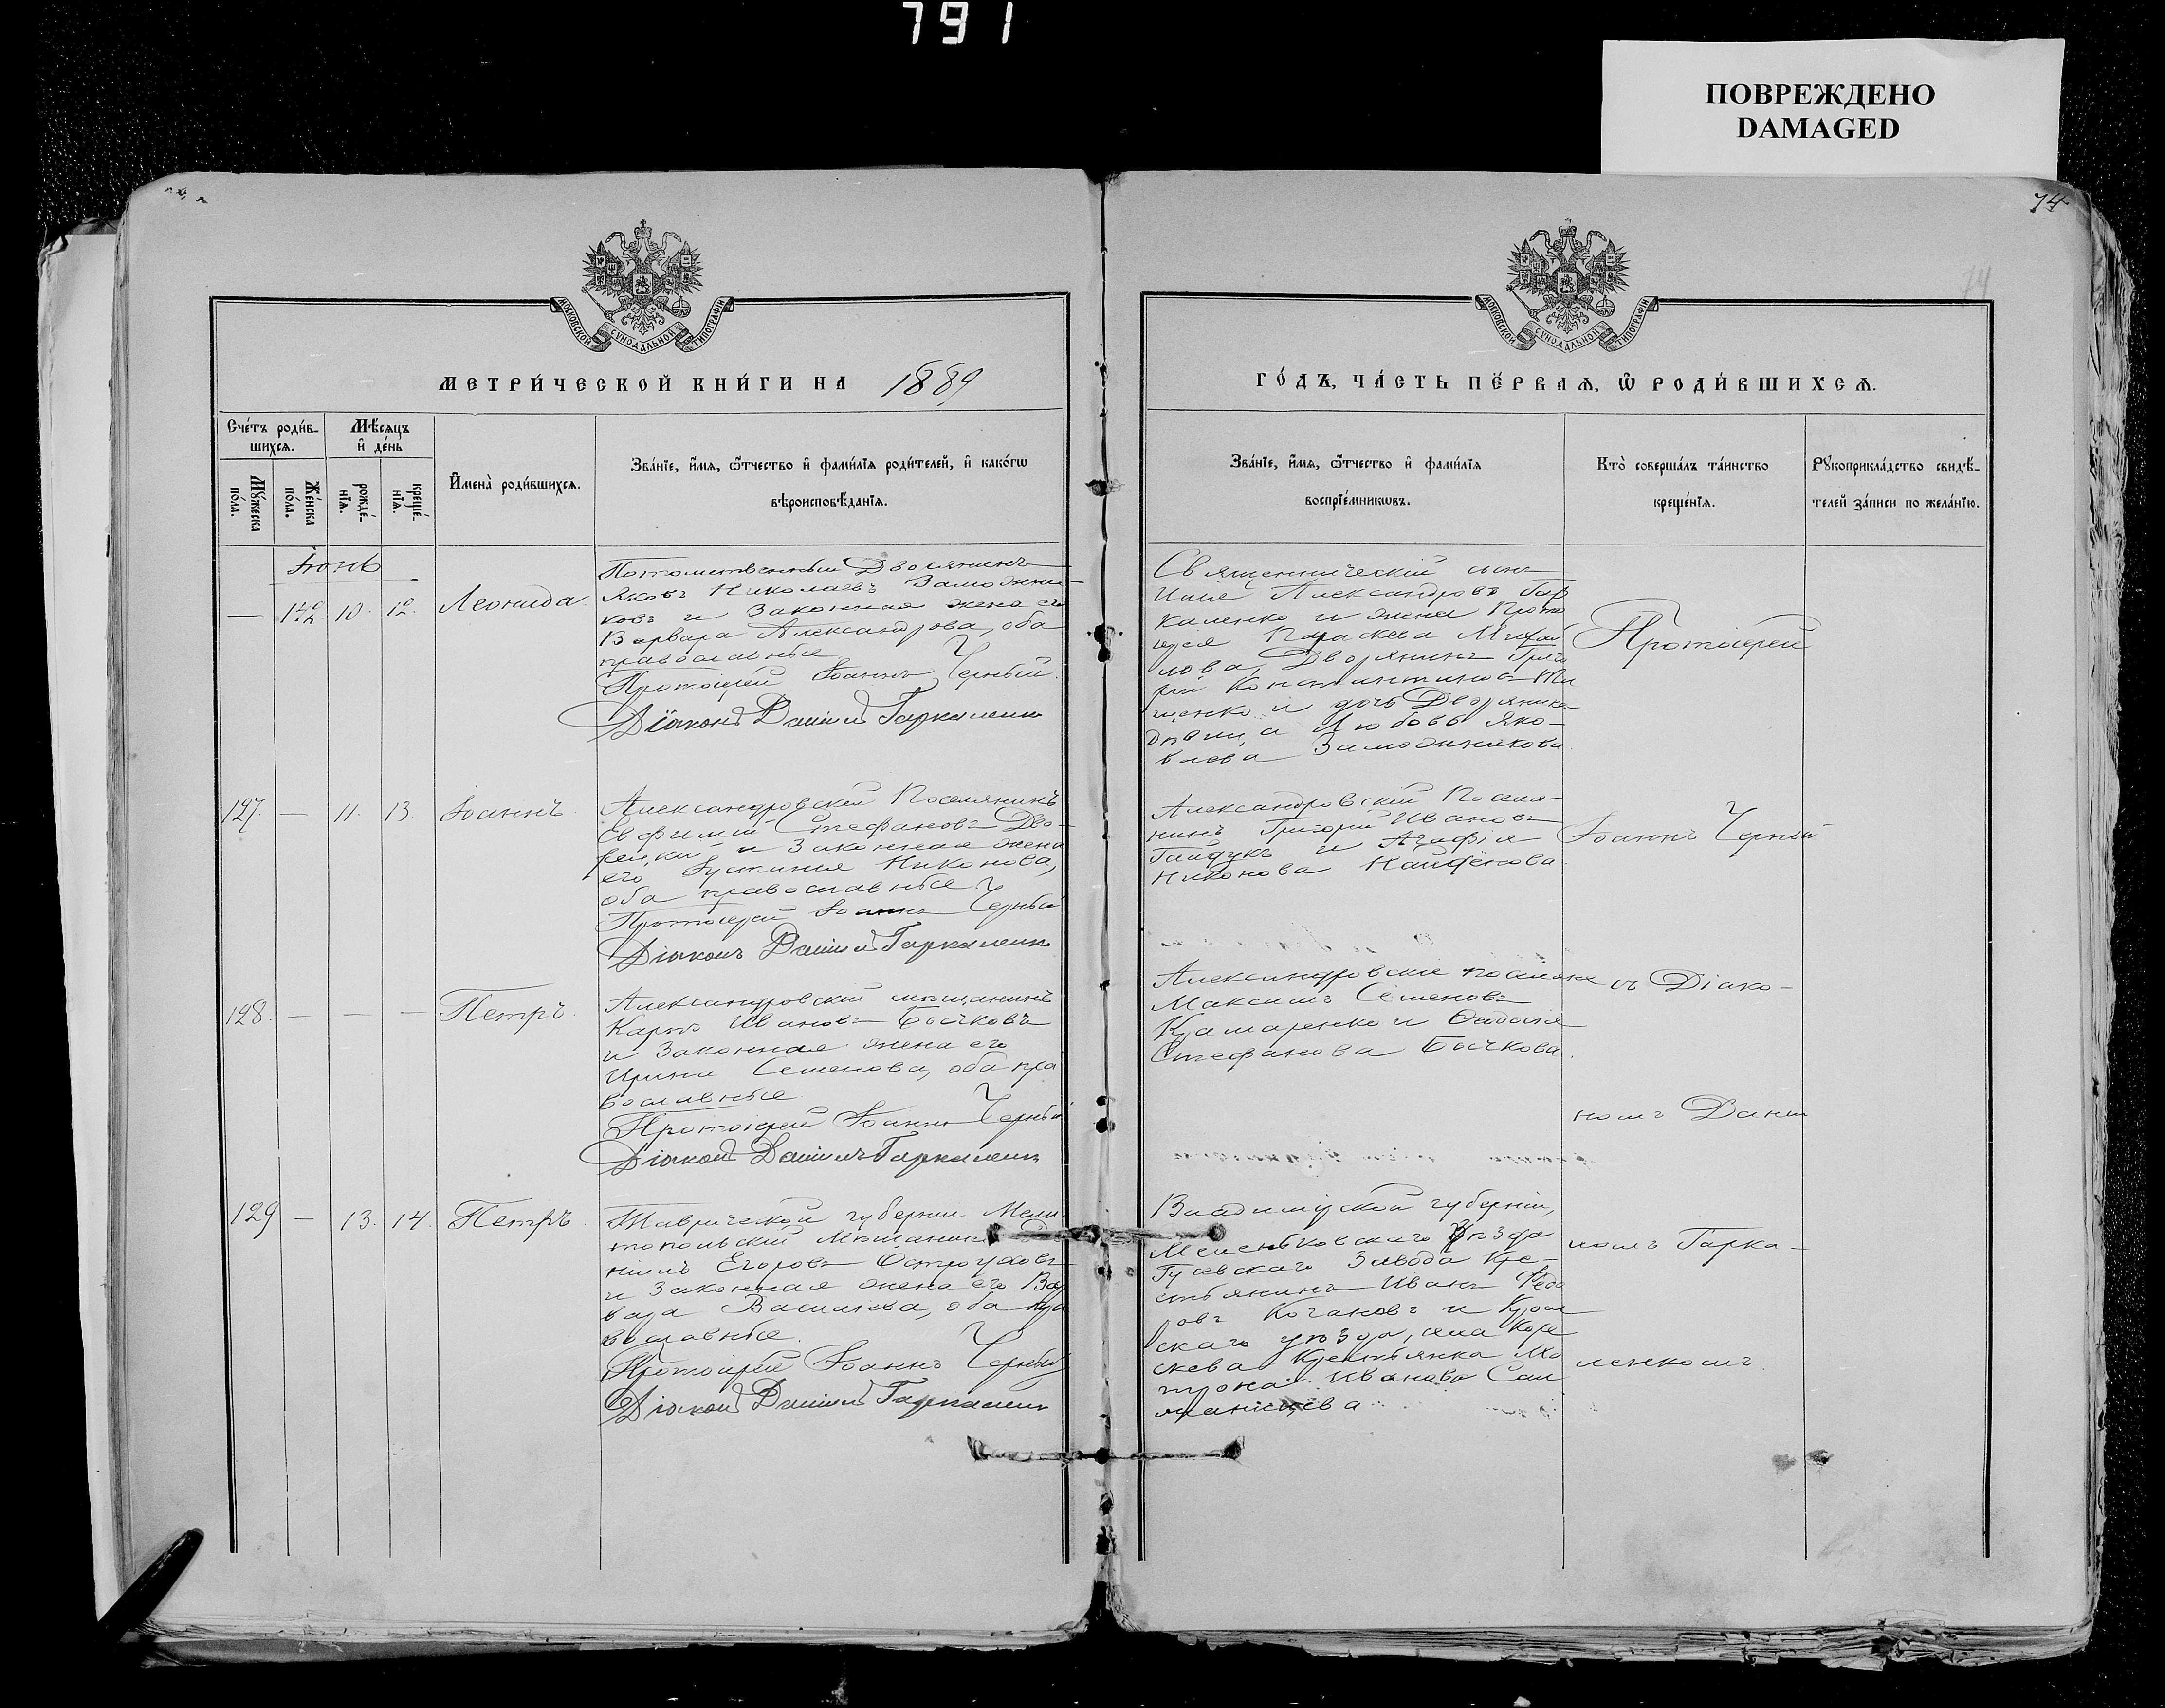 791
ПОВРЕЖДЕНО
DAMAGED
74
74
МОСКОВСКОЙ СУНОДАЛЬНОЙ ТИПОГРАФІИ
МОСКОВСКОЙ СУНОДАЛЬНОЙ ТИПОГРАФІИ
МЕТРИ́ЧЕСКОЙ КНИ́ГИ НА 1889
ГО́ДЪ, ЧА́СТЬ ПЕ́РВАѦ, Ѡ҆ РОДИ́ВШИХСѦ.
Сче́тъ роди́в-
шихсѧ.
Мѣ́сѧцъ
и҆ де́нь
Мꙋ́жеска
по́ла.
Же́нска
по́ла.
рожде́-
нїѧ.
креще́-
нїѧ.
И҆мена̀ роди́вшихсѧ.
Зва́нїе, и҆́мѧ, ѻ҆́тчество и҆ фами́лїѧ роди́телей, и҆ како́гѡ
вѣроисповѣ́данїѧ.
Зва́нїе, и҆́мѧ, ѻ҆́тчество и҆ фами́лїѧ
воспрїе́мникѡвъ.
Кто̀ соверша́лъ та́инство
креще́нїѧ.
Рꙋкоприкла́дство свидѣ́-
телей за́писи по жела́нїю.
Іюнь
— 142 10. 12 Леонида.
Потомственный Дворянинъ
Яковъ Николаевъ Заможни-
ковъ и Законная жена его
Варвара Александрова, оба
православные
Протоіерей Іоаннъ Черный.
Діаконъ Даніилъ Гаркаленко
Священническій сынъ
Илія Александровъ Гар
каленко и жена Прото
іерея Параскева Михай
лова, Дворянинъ Григо
рій Константиновъ
щенко и дочь Дворянина
дѣвица Любовь Яко-
влева Заможникова
Протоіерей
127. — 11. 13 Іоаннъ.
Александровскій Поселянинъ
Евфимій Стефановъ Дво-
рецкій и Законная жена
его Іустинія Никонова,
оба православные
Протоіерей Іоаннъ Черный
Діаконъ Даніилъ Гаркаленко
Александровскій Поселя-
нинъ Григорій Ивановъ
Гайдукъ и Агафія
Никонова
Іоаннъ Черный
128. — — — Петръ.
Александровскій мѣщанинъ
Карпъ Ивановъ Бычковъ
и Законная жена его
Ирина Семенова, оба пра
вославные
Протоіерей Іоаннъ Черный
Діаконъ Даніилъ Гаркаленко
Александровскіе поселяне
Максимъ Семеновъ
Крамаренко и Ѳеодосія
Стефанова Бычкова.
съ Діако-
номъ Дані
129 — 13. 14. Петръ
Таврической губерніи Мели
топольскій Мѣщанинъ Да
ніилъ Егоровъ Остроуховъ
и Законная жена его Вар
вара Васильева, оба пра
вославные.
Протоіерей Іоаннъ Черный
Діаконъ Даніилъ Гаркаленко
Владимірской губерніи,
Меленьковскаго Уѣзда
Гусевскаго Завода Кре-
стьянинъ Иванъ Федо
ровъ Кочановъ и
скаго уѣзда, села
Крестьянка Ма
трона Иванова
ломъ Гарка-
ленкомъ